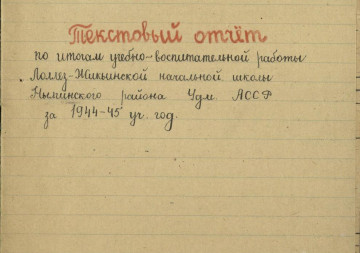 Текстовый отчёт
по итогам учебно-воспитательной работы
Лоллез-Жикьинской начальной школы
Нылгинского района Удм. АССР
за 1944-45 уч. год.